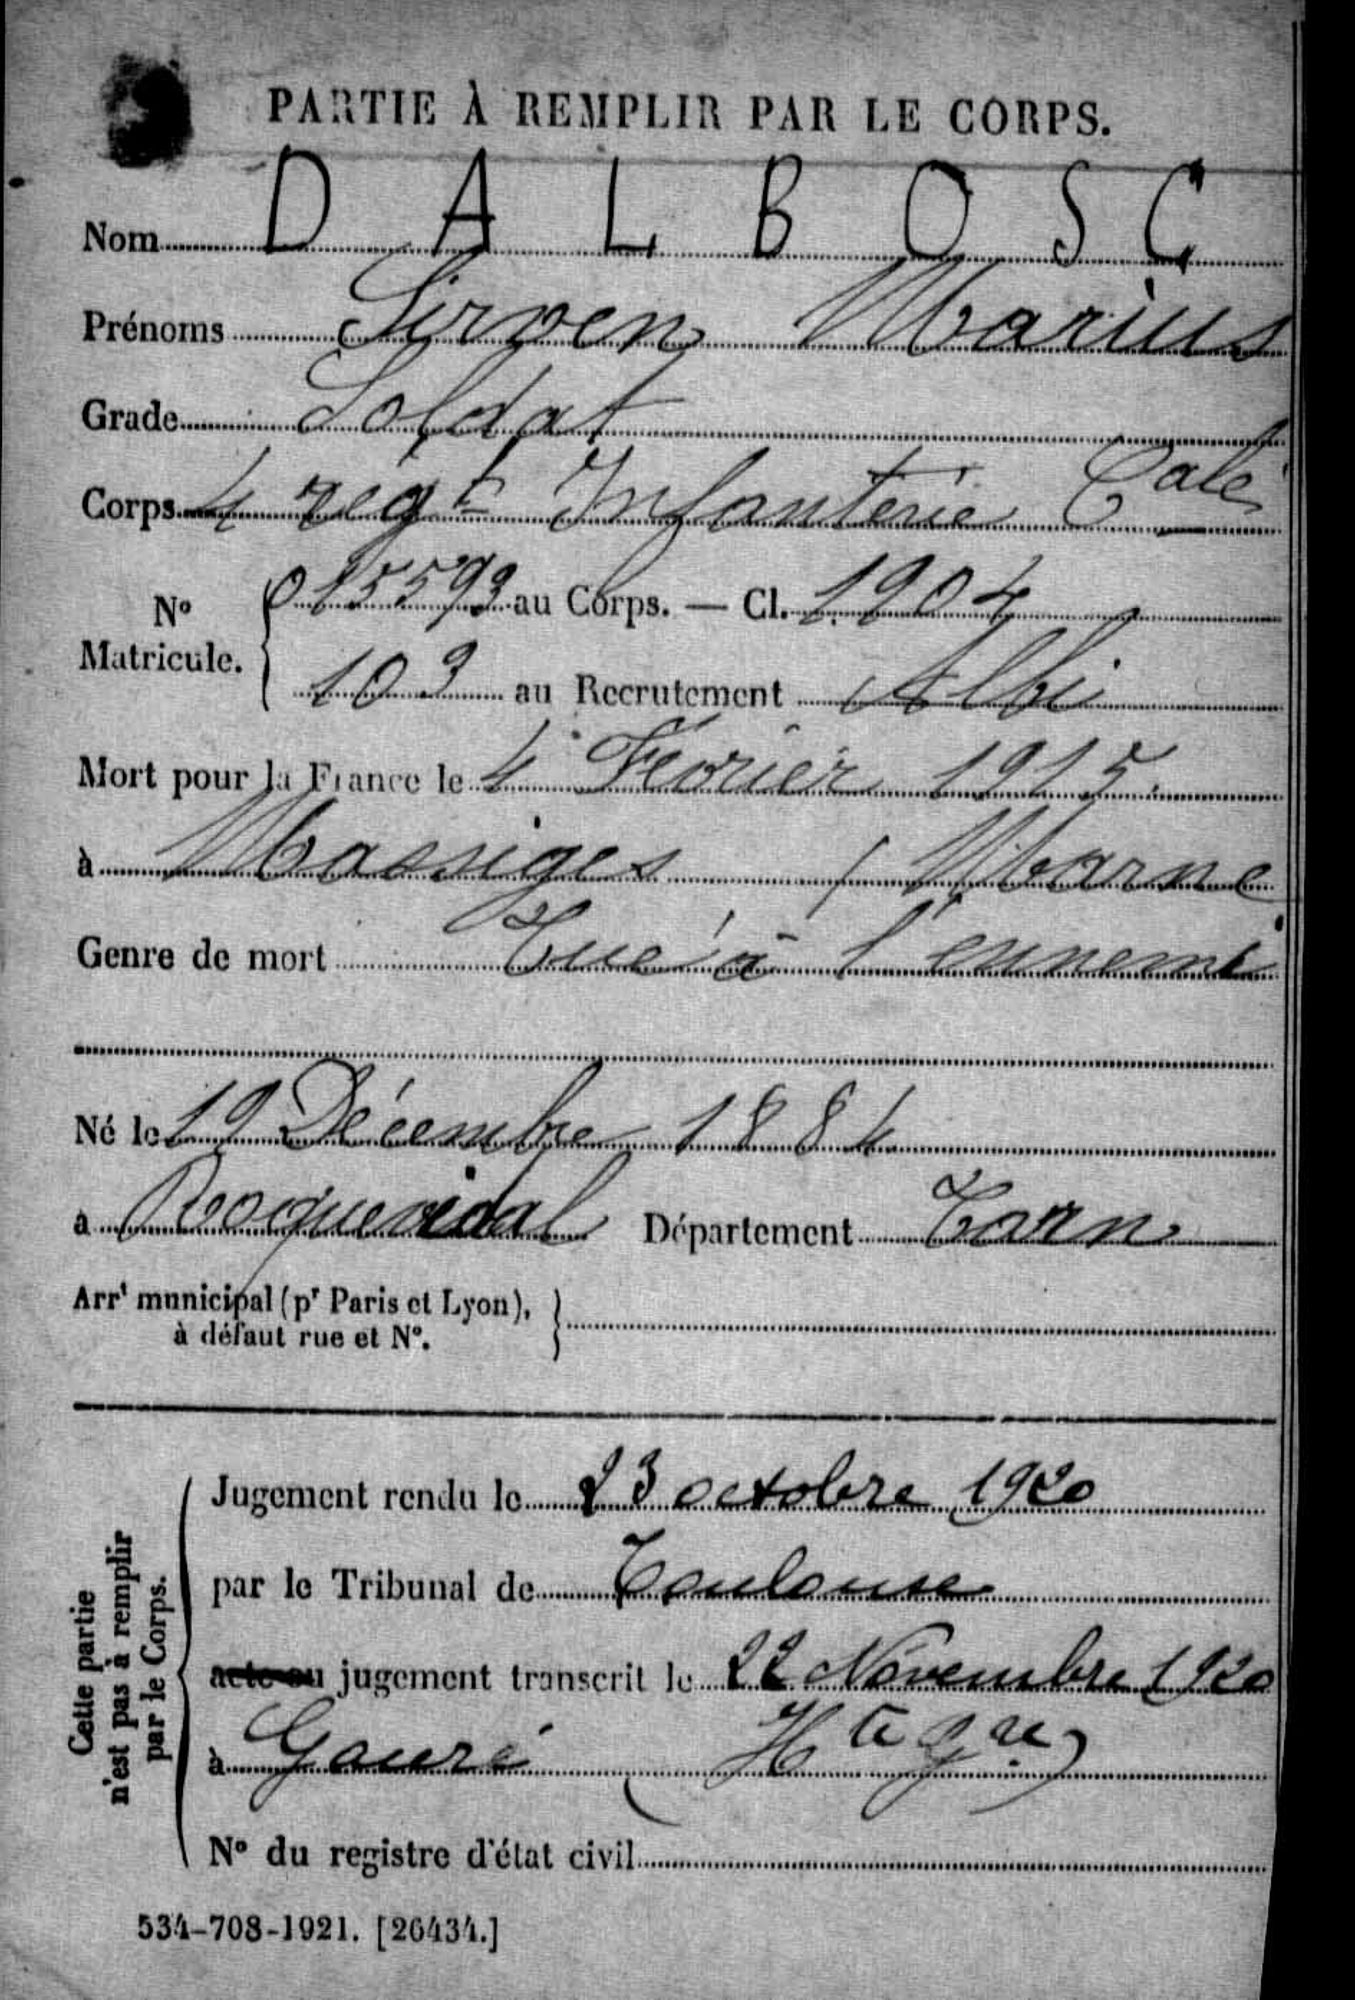 PARTIE À REMPLIR PAR LE CORPS.
Nom DALBOSC
Prénoms Sirven Marius
Grade Soldat
Corps 4 régt Infanterie Cale
No Matricule. 015593 au Corps. — Cl. 1904
103 au Recrutement Albi
Mort pour la France le 4 Février 1915.
à Massiges (Marne
Genre de mort Tué à l'ennemi
Né le 19 Décembre 1884
à Roquevidal Département Tarn
Arrt municipal (pr Paris et Lyon),
à défaut rue et No.
Cette partie
n'est pas à remplir
par le Corps.
Jugement rendu le 23 octobre 1920
par le Tribunal de Toulouse
acte ou jugement transcrit le 22 Novembre 1920
à Gauré (Hte Gne)
No du registre d'état civil
534-708-1921. [26434.]